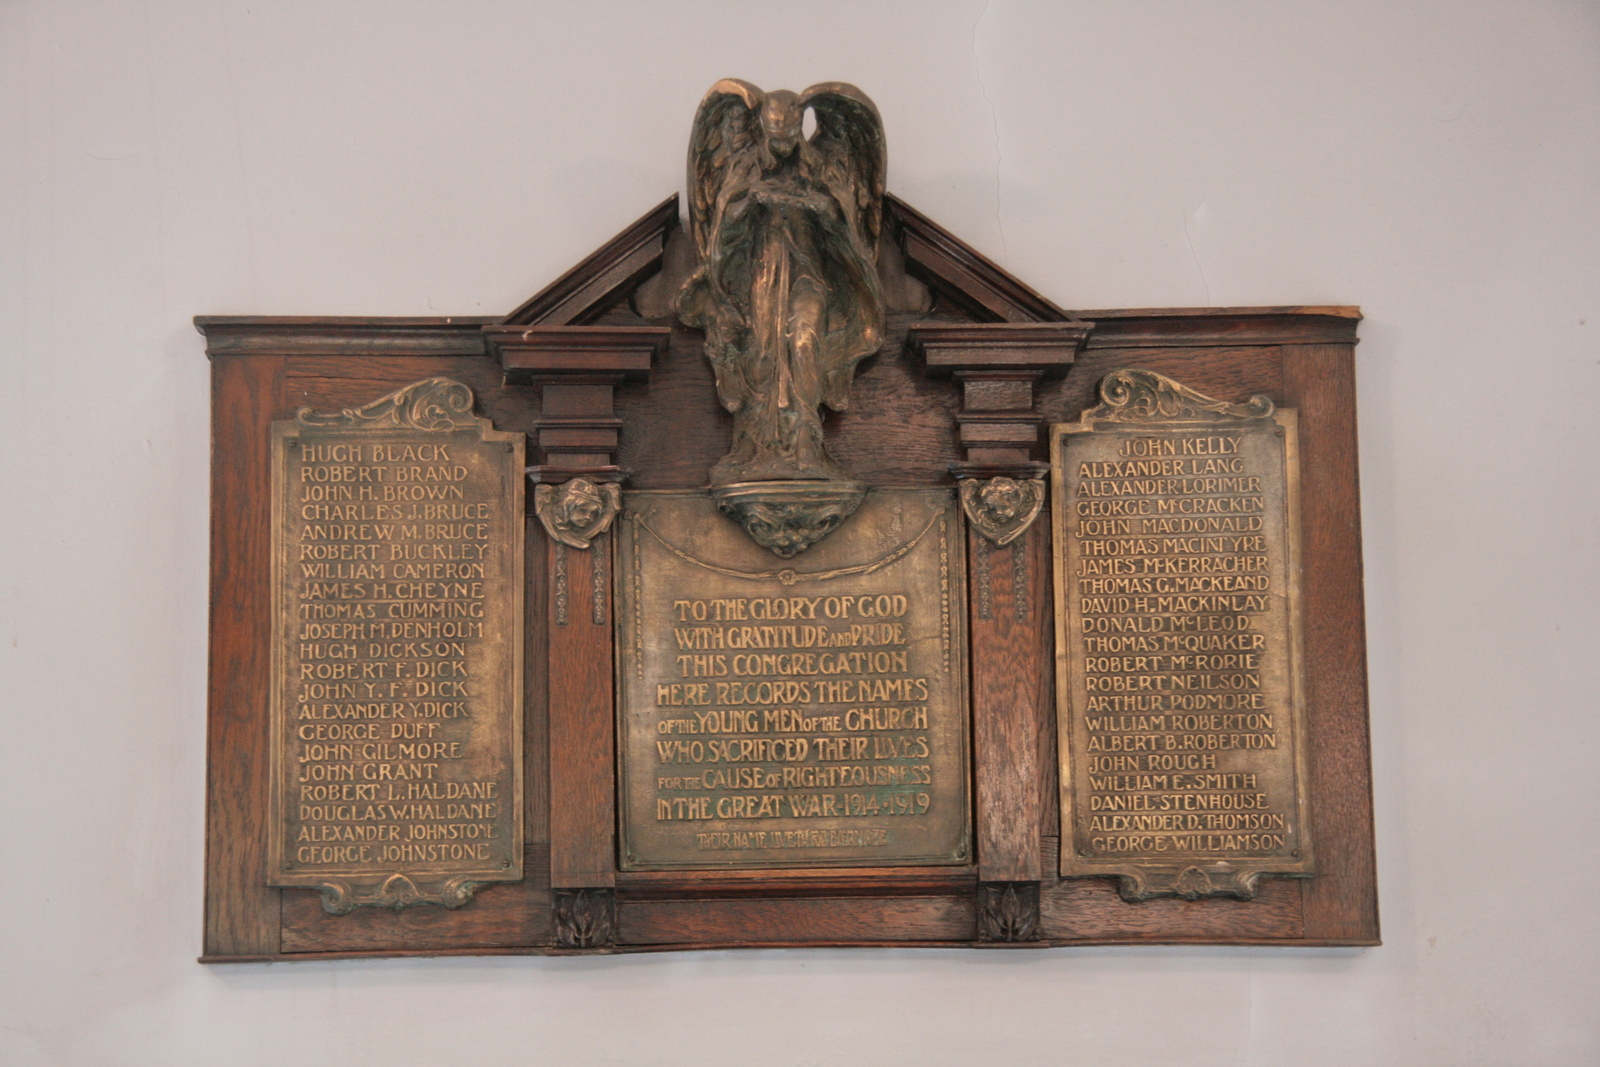 HUGH BLACK
ROBERT BRAND
JOHN H. BROWN
CHARLES J. BRUCE
ANDREW M. BRUCE
ROBERT BUCKLEY
WILLIAM CAMERON
JAMES H. CHEYNE
THOMAS CUMMING
JOSEPH M. DENHOLM
HUGH DICKSON
ROBERT F. DICK
JOHN Y. F. DICK
ALEXANDER Y. DICK
GEORGE DUFF
JOHN GILMORE
JOHN GRANT
ROBERT L. HALDANE
DOUGLAS W. HALDANE
ALEXANDER JOHNSTONE
GEORGE JOHNSTONE
TO THE GLORY OF GOD
WITH GRATITUDE AND PRIDE
THIS CONGREGATION
HERE RECORDS THE NAMES
OF THE YOUNG MEN OF THE CHURCH
WHO SACRIFICED THEIR LIVES
FOR THE CAUSE OF RIGHTEOUSNESS
IN THE GREAT WAR · 1914 · 1919
THEIR NAME LIVETH FOR EVERMORE
JOHN KELLY
ALEXANDER LANG
ALEXANDER LORIMER
GEORGE McCRACKEN
JOHN MACDONALD
THOMAS MACINTYRE
JAMES McKERRACHER
THOMAS G. MACKEAND
DAVID H. MACKINLAY
DONALD McLEOD
THOMAS McQUAKER
ROBERT McRORIE
ROBERT NEILSON
ARTHUR PODMORE
WILLIAM ROBERTON
ALBERT B. ROBERTON
JOHN ROUGH
WILLIAM E. SMITH
DANIEL STENHOUSE
ALEXANDER D. THOMSON
GEORGE WILLIAMSON